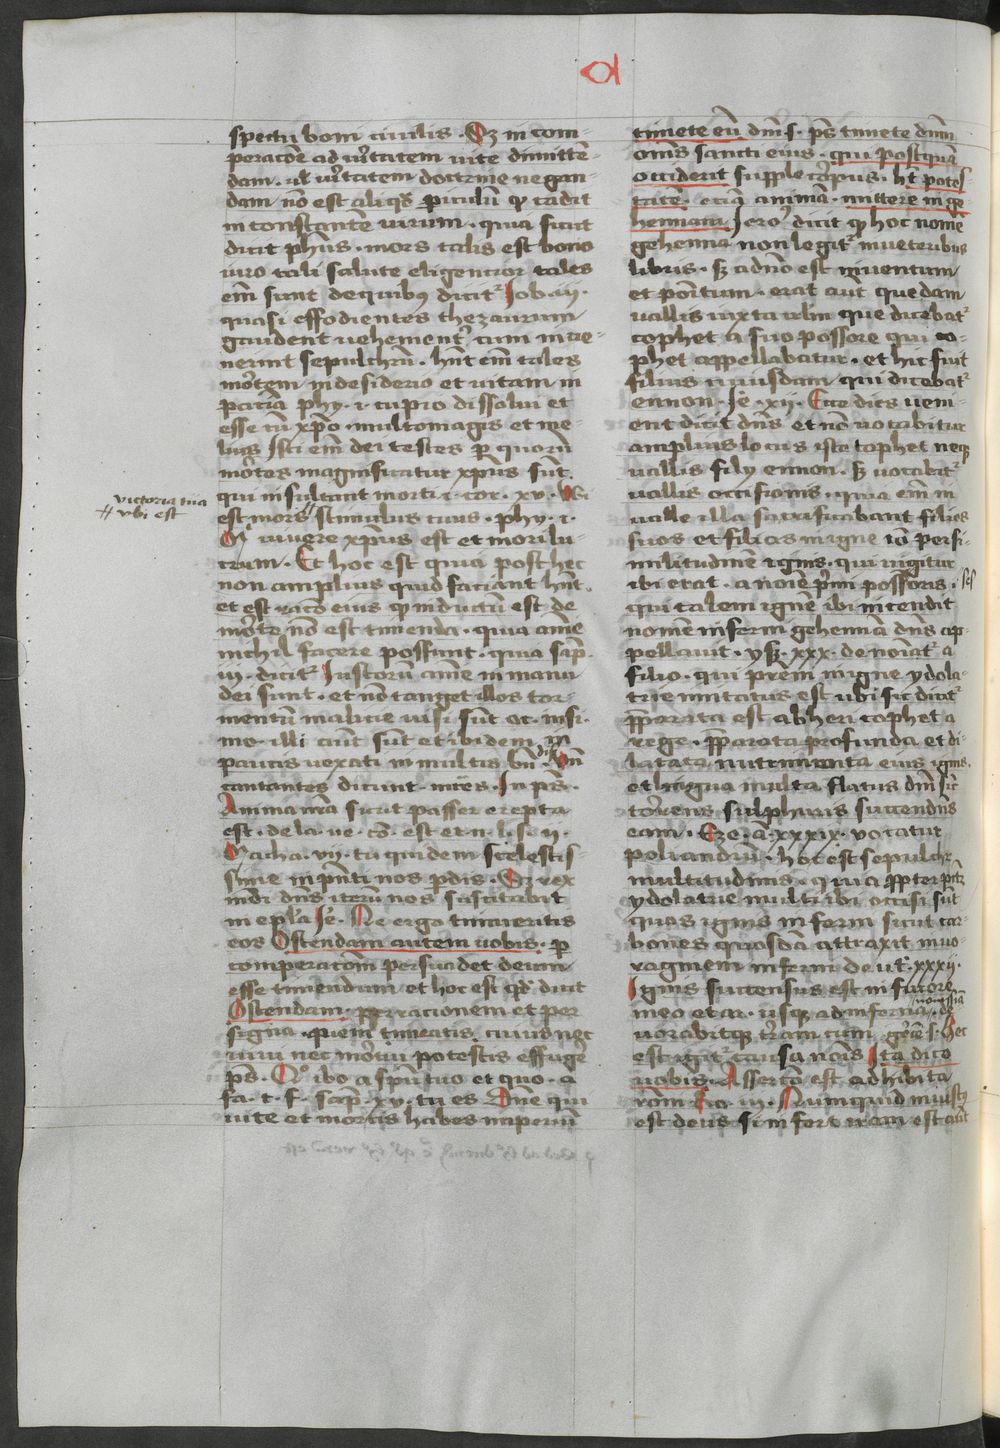 spectu boni ciuilis . Sꝫ in com-
peracōe ad ūitatem uite dimittē-
dam . ul ūitatem doctrine negan-
dam nō est aliqḋ piculū qͥ cadit
in constantē uirum . quia sicut
dicit phūs . mors talis est bono
uiro tali salute eligencior tales
em̄ sunt de quibꝰ dicitᷣ Job . iij .
quasi effodientes thezaurum
gaudent uehementˀ cum inue-
nerint sepulchrū . hn̄t em̄ tales
mortem in desiderio et uitam in
paciā phy . i . cupio dissolui et
esse cū xpō . multo magis et me-
lius Isti em̄ dei testes p quorū
mortes magnificatur xpūs sūt
qui insultant morti i . cor . xv . Ubi
victoria tua
⧺ vbi est
est mors ⧺ stimulus tuus . phy . i .
Mͥ uiuere xpūs est et mori lu-
crum . Et hoc est quia post hec
non amplius quid faciant hn̄t .
et est racō eius qͥ inductū est de
morte nō est timenda . quia aīme
nichil facere possunt . quia sap̄ .
iij . dicitᷣ Iustorū aīme in manu
dei sunt . et nō tanget illos tor-
mentū malicie uisi sūt oc . insi .
mo . illi aūt sūt et ibidem in
paucis uexati in multis bn̄ di. Vn̄
cantantes dicunt . mr̄es . In ps̄ .
Anima nr̄a sicut passer erepta
est . de la . ue . cō . est et n . l . s . n .
Macha . vij . tu quidem scelestis-
sime in pn̄ti nos pdis . Sꝫ rex
mdi dn̄s iterū nos suscitabit
in epl̄a Ie . Ne ergo timueritis
eos Ostendam autem uobis . p
comperacōm persuadet deum
esse timendum et hoc est qḋ dicit
Ostendam . per racionem et per
signa . quem timeatis . cuius nec
uiui nec mortui potestis effugˀe
ps̄ . Qͦ ibo a spū tuo et quo . a
fa . t . f . sap̄ . xv . tu es dn̄e qui
uite et mortis habes imperiū
timete eū dm̄ s . ps̄ timete dnm̄
om̄s sancti eius . qui postquā
occiderit supple corpus . ht potes-
tatē . eciā animā . mittere in ge-
hennam Ieroˀ dicit qͥ hoc nomē
gehenna non legitᷣ in ueteribus
libris . sꝫ a dnō est inuentum
et positum . erat aūt que dam
uallis iuxta irlm̄ que dicebatᷣ
tophet a suo possore qui to-
phet appellabatur . et hic fuit
filius cuiusdam qui dicebatᷣ
ennon . Ie . xij . Ecce dies ueni-
ent dicit dn̄s et nō uocabitur
amplius locus iste tophet neqꝫ
uallis filij ennon . sꝫ uocabitᷣ
uallis occisionis . quia em̄ in
ualle illa sacrificabant filios
suos et filias in igne iō per si-
militudinē ignis . qui iugiter
ibi erat . a noīe pˀmi possoris .
qui talem ignē ibi incendit
nomē inferni gehennā dn̄s ap-
pellauit . ysꝫ . xxx . de noīatᷣ a
filio . qui prēm in igne ydola-
trie imitatus est ubi sic dicitᷣ
pparata est ab heri tophet a
rege . pparata profunda et di-
latata nutrimenta eius ignis .
et ligna multa flatus dm̄ sic̄
torrens sulphuris succendn̄s
eam . Eze . a . xxxix . uocatur
poliandrū . hoc est sepulchˀ
multitudinis . quia ppter pccā
ydolatrie multi ibi occisi sūt
quos ignis inferni sicut car-
bones quosdā attraxit in uo-
raginem inferni deutˀ . xxxij .
Ignis succensus est in furore
nouissīa
meo et ar . usqꝫ ad inferna . de-
uorabitqꝫ trram cum . gˀme s . Hec
est igitᷣ causa noīs Ita dico
uobis . Assercō est adhibita
rom . iij . Numquid iniustꝰ
est deus si infert iram est aūt